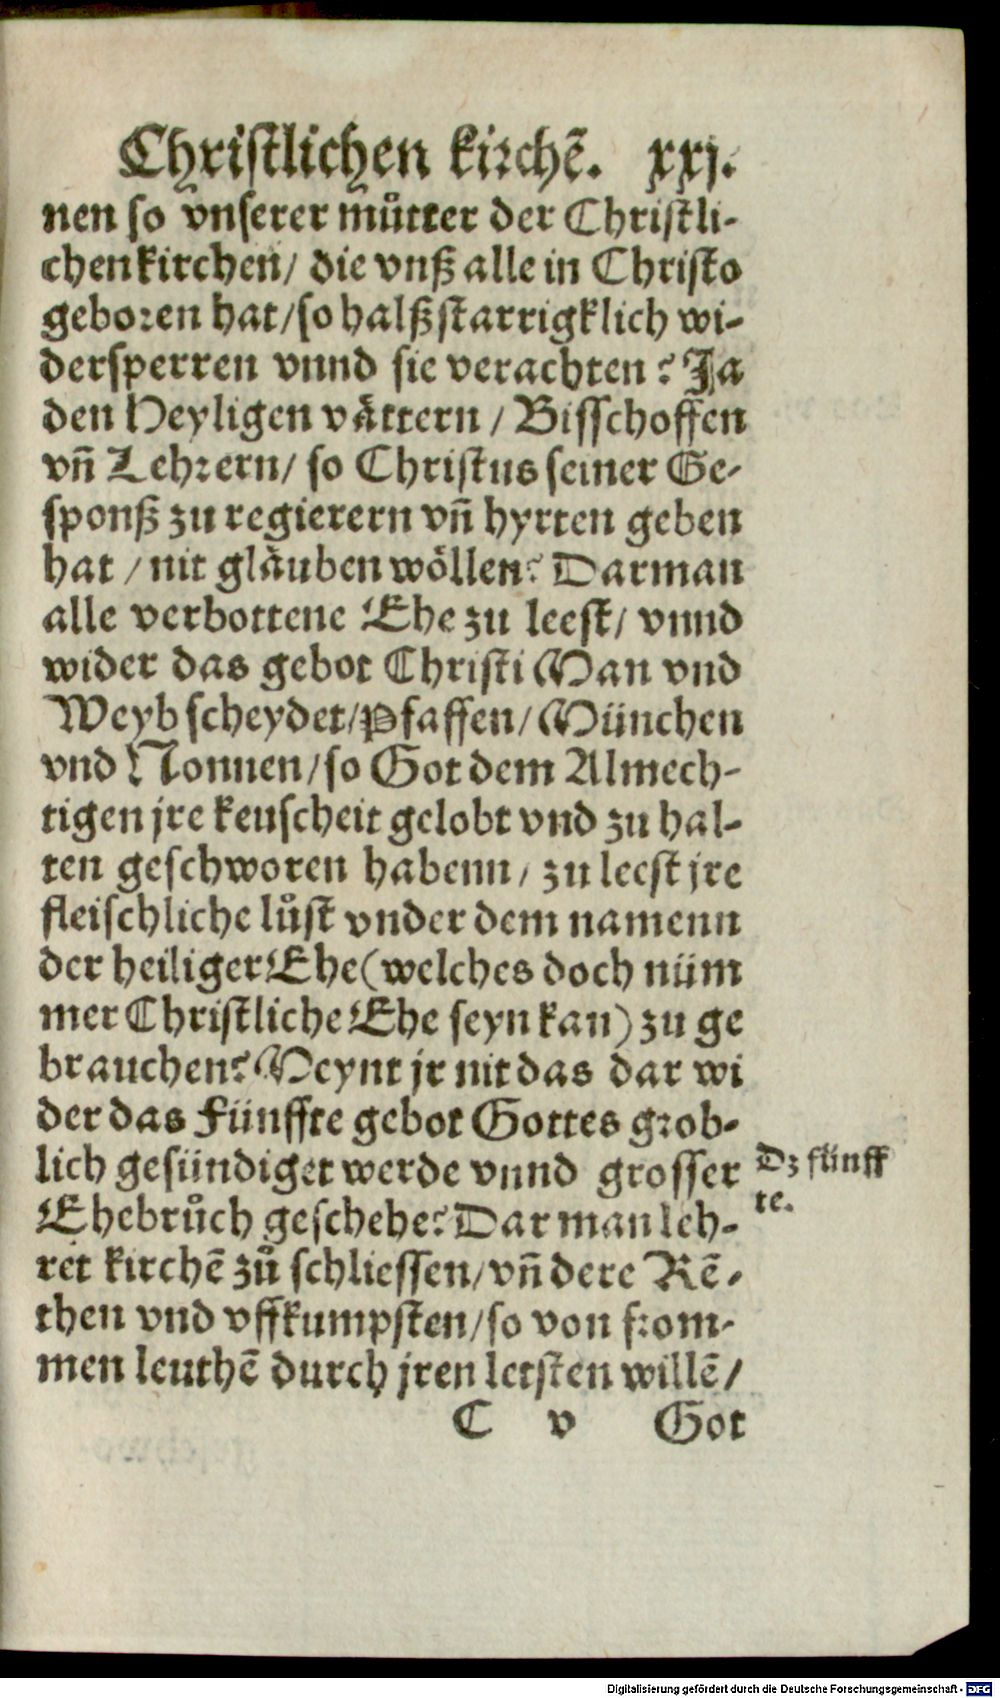 Christlichen kirchẽ. xxj.
nen so vnserer můtter der Christli-
chenkirchen/ die vnß alle in Christo
geboren hat/so halßstarrigklich wi-
dersperren vnnd sie verachten? Ja
den Heyligen våttern / Bisschoffen
vñ Lehrern/ so Christus seiner Ge-
sponß zu regierern vñ hyrten geben
hat / nit glåuben wöllen? Darman
alle verbottene Ehe zu leest/ vnnd
wider das gebot Christi Man vnd
Weyb scheydet/Pfaffen/ München
vnd Nonnen/so Got dem Almech-
tigen jre keuscheit gelobt vnd zu hal-
ten geschworen habenn/ zu leest jre
fleischliche lůst vnder dem namenn
der heiliger Ehe (welches doch nüm
mer Christliche Ehe seyn kan) zu ge
brauchen? Meynt jr nit das dar wi
der das Fünffte gebot Gottes grob-
lich gesündiget werde vnnd grosser
Dz fünff
te.
Ehebrůch geschehe? Dar man leh-
ret kirchẽ zů schliessen/vñ dere Rẽ-
then vnd vffkumpsten/so von from-
men leuthẽ durch jren letsten willẽ/
C v Got
Digitalisierung gefördert durch die Deutsche Forschungsgemeinschaft - DFG